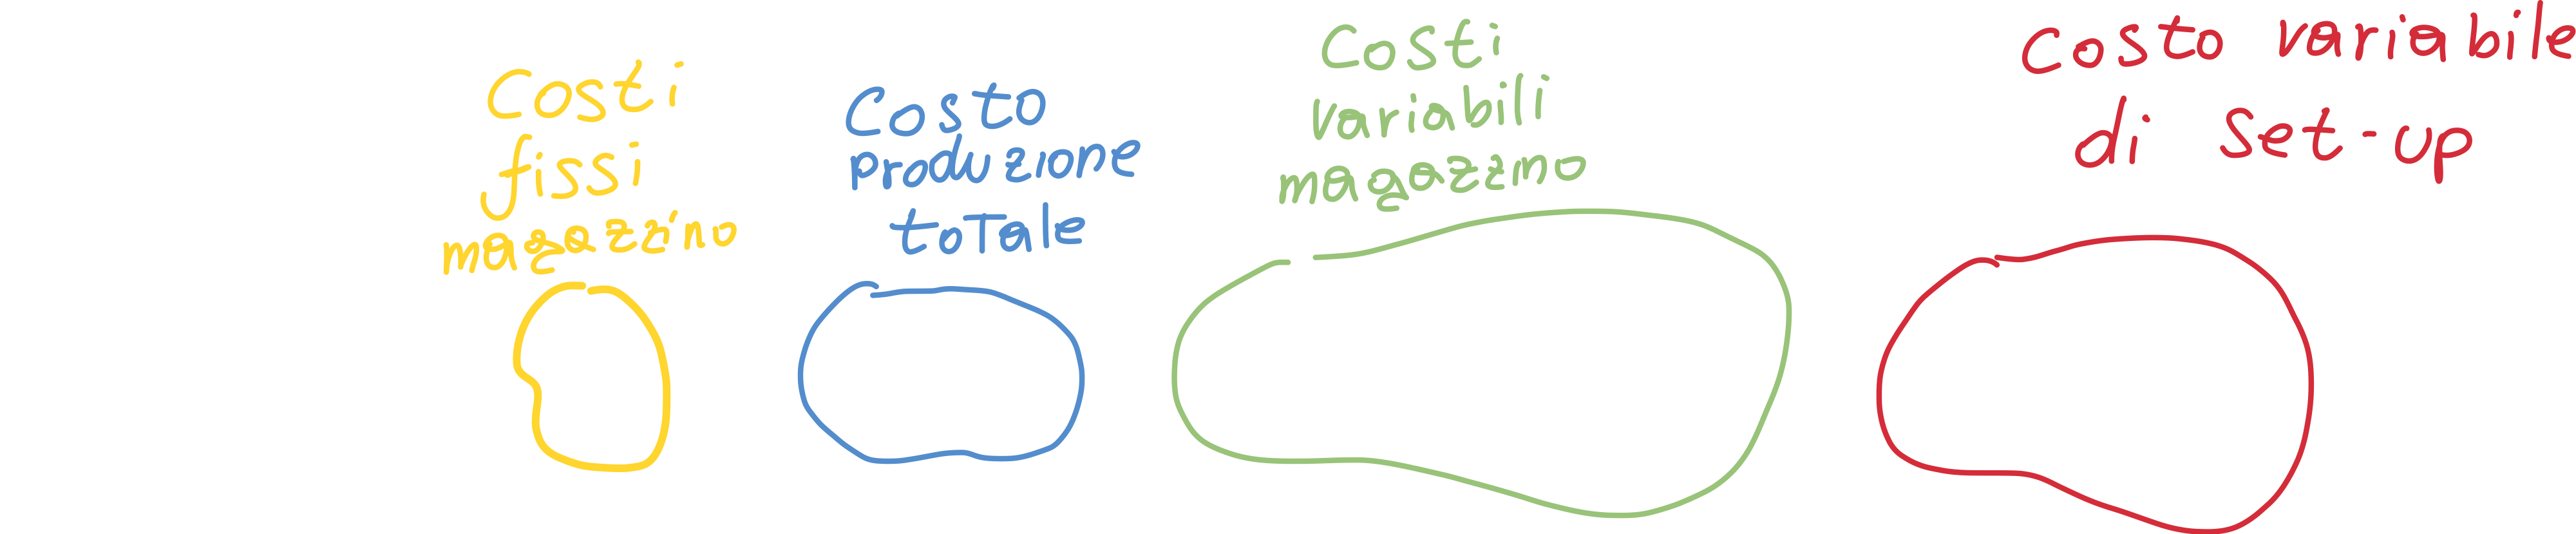 Costi
fissi
magazzino
Costo
produzione
totale
Costi
variabili
magazzino
Costo variabile
di set-up